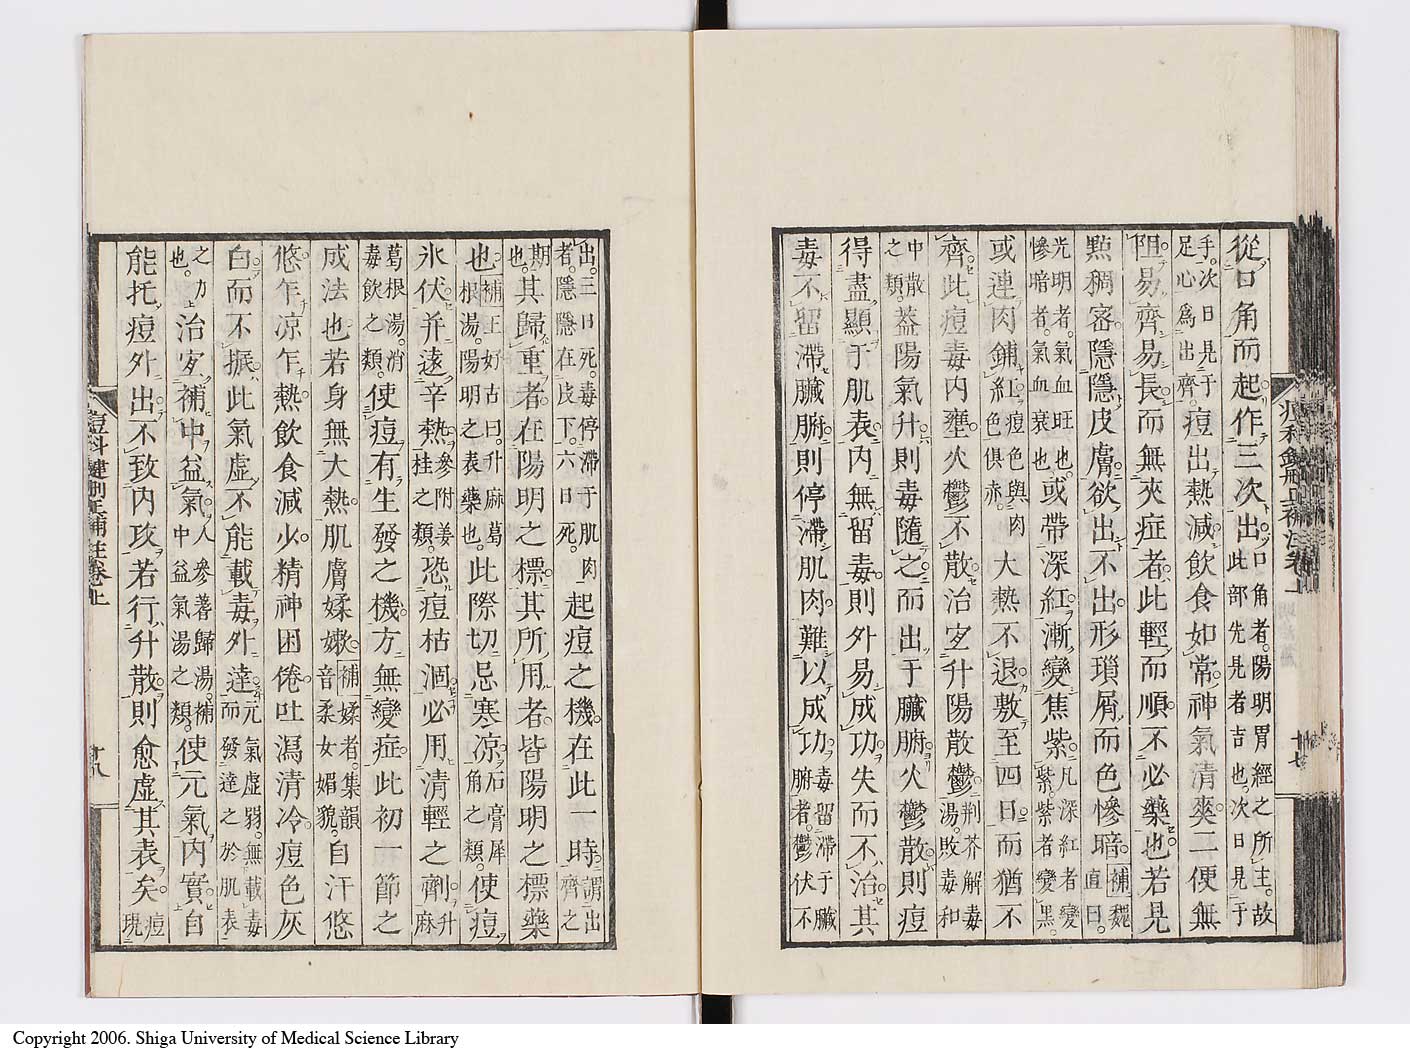 從口角而起作三次出口角者陽明胃經之所主故
手次日見于痘出熱減飲食如常神氣清爽二便無
足心爲出齊
阻易齊易長而無夾症者此輕而順不必藥也若見
㸃稠密隱隱皮膚欲出不出形瑣屑而色慘暗補
光明者氣血旺也或帶深紅漸變焦紫凡深紅者變
慘暗者氣血衰也紫紫者變黑
或連肉鋪紅痘色與肉大熱不退敷至四日而猶不
色俱赤
齊此痘毒內壅火鬱不散治宜升陽散鬱荆芥解毒
湯敗毒和
中散葢陽氣升則毒隨之而出于臟腑火鬱散則痘
之類
得盡顯于肌表內無留毒則外易成功失而不治其
毒不留滯臟腑則停滯肌肉難以成功毒留滯于臟
腑者鬱伏不
出三日死毒停滯于肌肉起痘之機在此一時謂出
者隱隱在皮下六日死齊之
期其歸重者在陽明之標其所用者皆陽明之標藥
也
也補王好古曰升麻葛此際切忌寒凉石膏犀使痘
根湯陽明之表藥也角之類
氷伏并遠辛熱參附姜恐痘枯涸必用清輕之劑升
桂之類麻
葛根湯消使痘有生發之機方無變症此初一節之
毒飲之類
成法也若身無大熱肌膚媃嫰補媃者集韻自汗悠
音柔女媚貌
悠乍凉乍熱飲食減少精神困倦吐瀉清冷痘色灰
白而不振此氣虛不能載毒外達元氣虛弱無載毒
而發達之於肌表
之力治宜補中益氣人參蓍歸湯補使元氣內實自
也中益氣湯之類
能托痘外出不致內攻若行升散則愈虛其表矣痘
現
痘科鍵刪正補註卷上
十八
十七
Copyright 2006. Shiga University of Medical Science Library